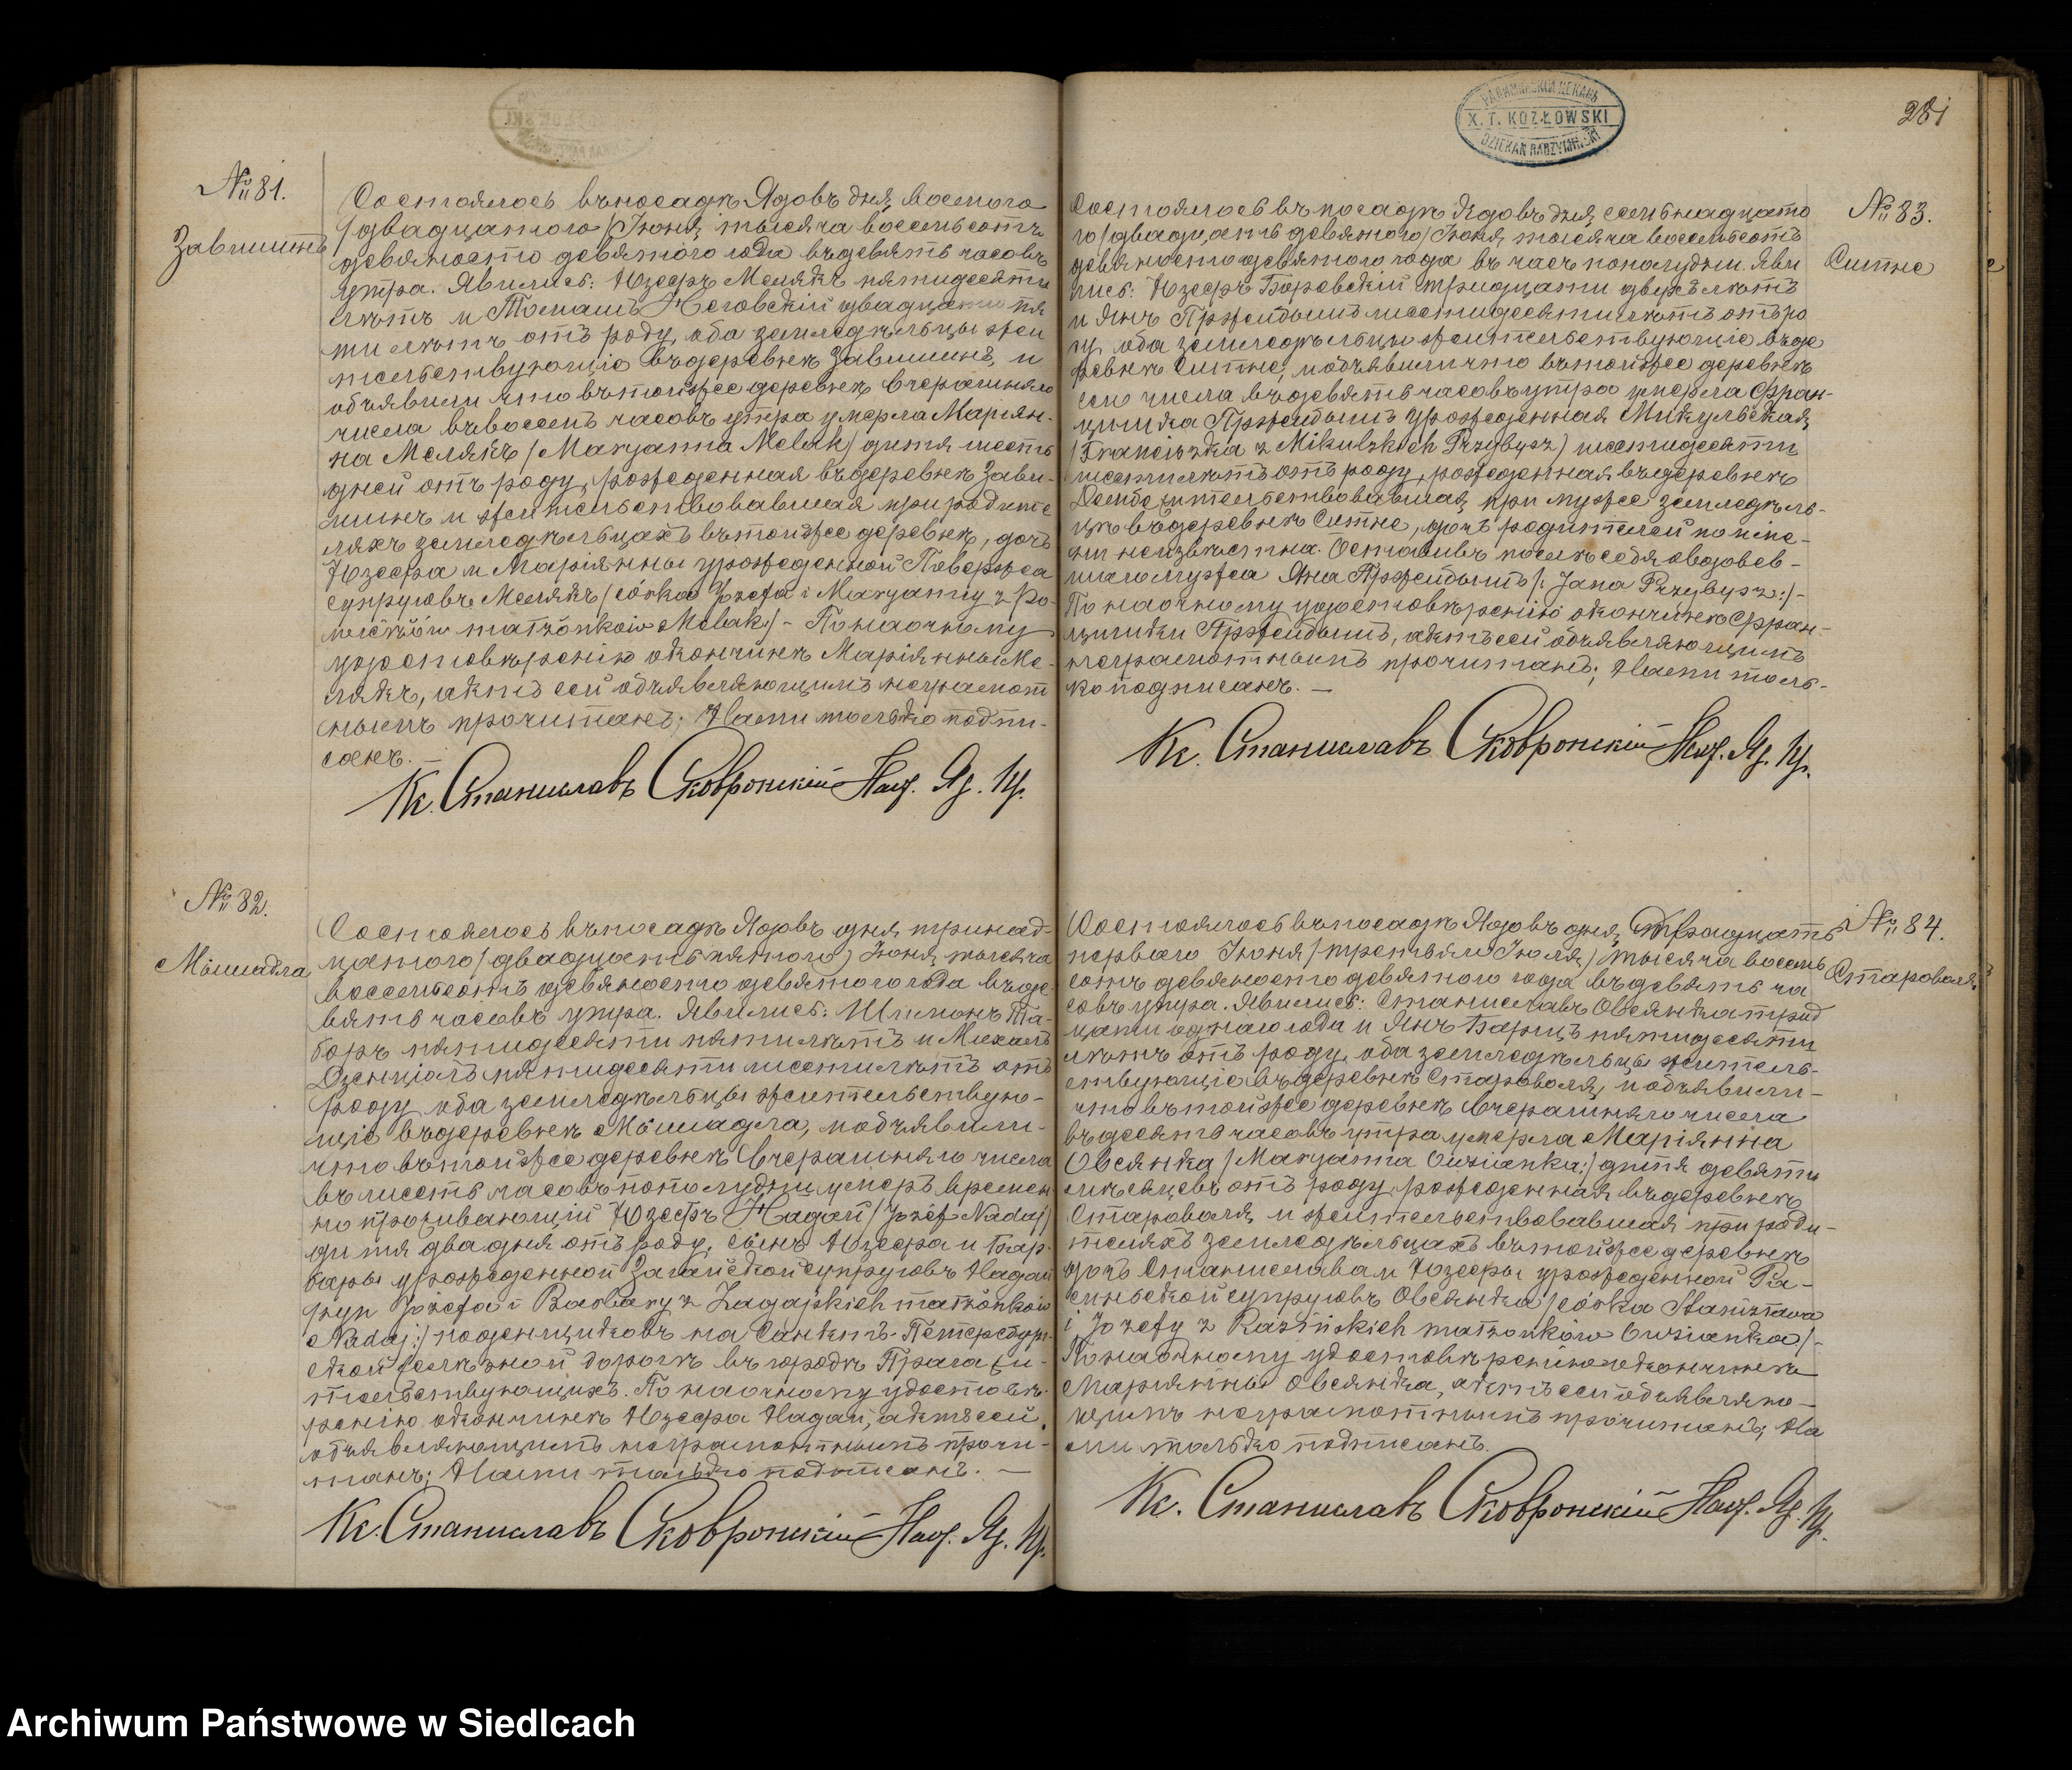 № 81.
Завишинъ
Состоялось въ посадѣ Ядовъ дня восьмого
/двадцатого/ Іюня тысяча восемьсотъ
девяносто девятого года въ девять часовъ
утра. Явились: Юзефъ Мелякъ пятидесяти
лѣтъ и Томашъ двадцати пя
ти лѣтъ отъ роду, оба земледѣльцы жи
тельствующіе въ деревнѣ Завишинъ, и
объявили что въ той же деревнѣ вчерашняго
числа въ восемь часовъ утра умерла Маріян-
на Мелякъ /Maryanna Melak/ дитя шесть
дней отъ роду, рожденная въ деревнѣ Зави-
шинъ и жительствовавшая при родите
ляхъ земледѣльцахъ въ той же деревнѣ, дочь
Юзефа и Маріянны урожденной
супруговъ Мелякъ /córka Józefa i Maryanny z
małżonków Melak/ - По наочному
удостовѣренію о кончинѣ Маріянны Ме-
лякъ, актъ сей объявляющимъ неграмот
нымъ прочитанъ; Нами только подпи-
санъ. —
Кс. Станиславъ Сковронскій Наст. Яд. Пр.
№ 82.
Мышадла
Состоялось въ посадѣ Ядовъ дня тринад-
цатого /двадцать пятого/ Іюня тысяча
восемьсотъ девяносто девятого года въ де-
вять часовъ утра. Явились: Шимонъ Та-
боръ пятидесяти пяти лѣтъ и Михалъ
Дзенціолъ пятидесяти шести лѣтъ отъ
роду, оба земледѣльцы жительствую-
щіе въ деревнѣ Мышадла, и объявили-
что въ той же деревнѣ вчерашняго числа
въ шесть часовъ по полудни умеръ времен
но проживающій Юзефъ Надай /Józef Nadaj/
дитя два дня отъ роду, сынъ Юзефа и Бар-
бары урожденной Загайской супруговъ Надай
/syn Józefa i Barbary z Zagajskich małżonków
Nadaj:/ поденщиковъ на Санктъ-Петербург-
ской желѣзной дорогѣ въ городѣ Прага жи-
тельствующихъ. По наочному удостовѣ-
ренію о кончинѣ Юзефа Надай, актъ сей
объявляющимъ неграмотнымъ прочи-
танъ; Нами только подписанъ. —
Кс. Станиславъ Сковронскій Наст. Яд. Пр.
РАДИМИНСКІЙ ДЕКАНЪ
X. T. KOZŁOWSKI
DZIEKAN RADZYMIŃSKI
281
№ 83.
Ситне
Состоялось въ посадѣ Ядовъ дня семьнадцато
го /двадцать девятого/ Іюня тысяча восемьсотъ
девяносто девятого года въ часъ пополудни. Яви
лись: Юзефъ Боровскій тридцати двухъ лѣтъ
и Янъ Пржибышъ шестидесяти лѣтъ отъ ро
ду, оба земледѣльцы жительствующіе въ де
ревнѣ Ситне, и объявили что въ той же деревнѣ
сего числа въ девять часовъ утра умерла Фран-
цишка Пржибышъ урожденная Микульская
/Franciszka z Mikulskich Przybysz/ шестидесяти
шести лѣтъ отъ роду, рожденная въ деревнѣ
жительствовавшая при мужѣ земледѣль-
цѣ въ деревнѣ Ситне, дочь родителей по име-
ни неизвѣстна. Оставивъ послѣ себя овдовев-
шаго мужа Яна Пржибышъ /: Jana Przybysz:/-
По наочному удостовѣренію о кончинѣ Фран-
цишки Пржибышъ, актъ сей объявляющимъ
неграмотнымъ прочитанъ; Нами толь-
ко подписанъ. —
Кс. Станиславъ Сковронскій Наст. Яд. Пр.
№ 84.
Староволя
Состоялось въ посадѣ Ядовъ дня Тридцать
перваго Іюня /третьяго Іюля/ тысяча восемь
сотъ девяносто девятого года въ девять ча
совъ утра. Явились: Станиславъ Овсянка трид
цати одного года и Янъ Барицъ пятидесяти
лѣтъ отъ роду, оба земледѣльцы житель-
ствующіе въ деревнѣ Староволя, и объявили-
что въ той же деревнѣ вчерашняго числа
въ десять часовъ утра умерла Маріянна
Овсянка /Maryanna Owsianka:/ дитя девяти
мѣсяцевъ отъ роду, рожденная въ деревнѣ
Староволя, и жительствовавшая при роди-
теляхъ земледѣльцахъ въ той же деревнѣ
дочь Станислава и Юзефы урожденной Ра-
синьской супруговъ Овсянка /córka Stanisława
i Józefy z Rasińskich małżonków Owsianka/-
По наочному удостовѣренію о кончинѣ
Маріянны Овсянка, актъ сей объявляю-
щимъ неграмотнымъ прочитанъ; На
ми только подписанъ.
Кс. Станиславъ Сковронскій Наст. Яд. Пр.
Archiwum Państwowe w Siedlcach